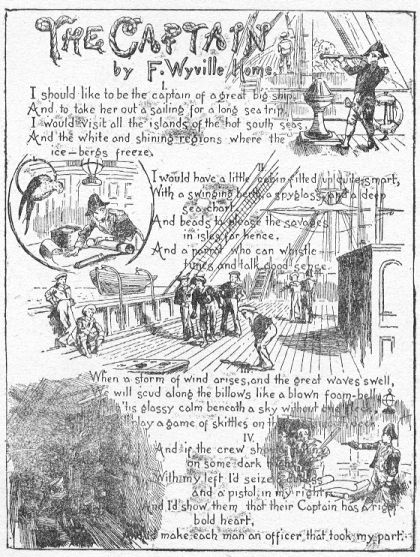 THE CAPTAIN
by F. Wyville Home.
I.
I should like to be the captain of a great big ship,
And to take her out a sailing for a long sea trip,
I would visit all the islands of the hot south seas,
And the white and shining regions where the
ice-bergs freeze.
II.
I would have a little cabin fitted up quite smart,
With a swinging berth, a spyglass, and a deep
sea chart
And beads to please the savages
in isles far hence,
And a parrot who can whistle
tunes and talk good sense.
III.
When a storm of wind arises, and the great waves swell,
We will scud along the billows like a blown foam-bell,
'tis glossy calm beneath a sky without
play a game of skittles on
IV.
And if the crew
on some dark
With my left I'd seize
and a pistol in my right,
And I'd show them that their Captain has a right
bold heart,
make each man an officer that took my part.